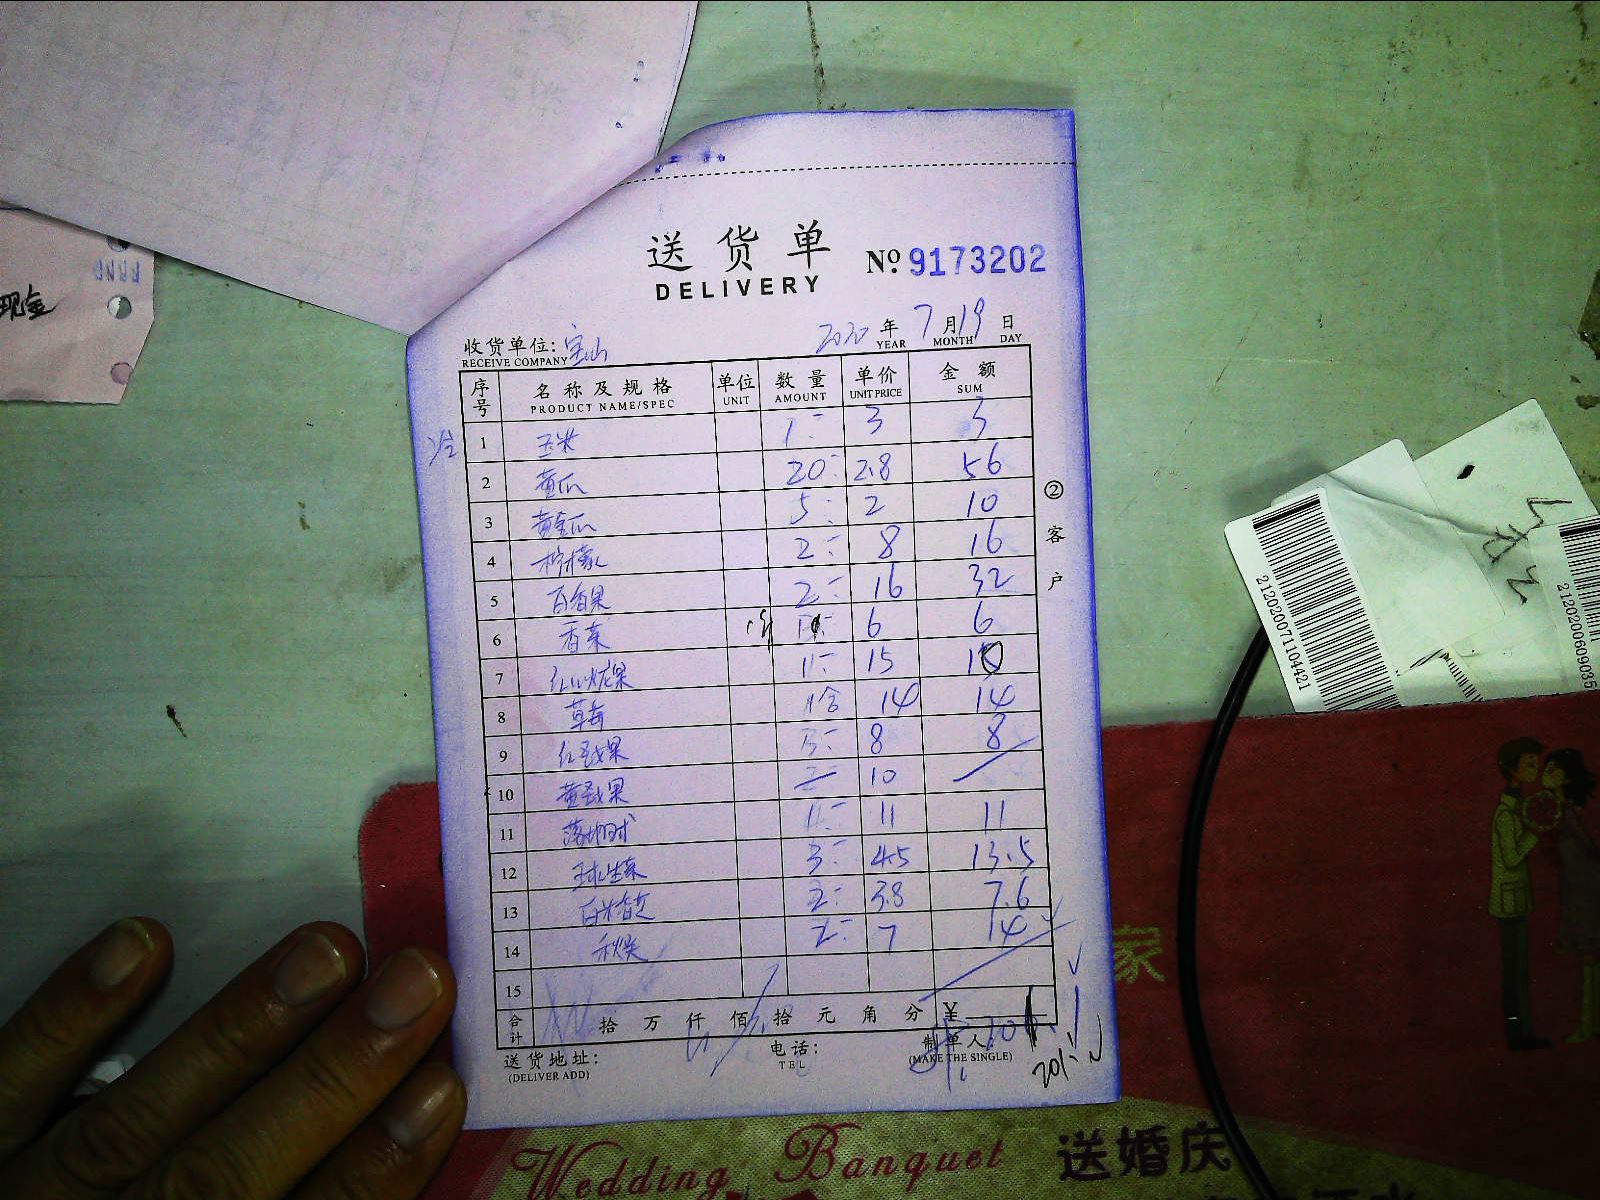 现金
送货单
DELIVERY
№ 9173202
收货单位: 宝山 2020 年 7 月 19 日
RECEIVE COMPANY YEAR MONTH DAY
序号 名称及规格 单位 数量 单价 金额
PRODUCT NAME/SPEC UNIT AMOUNT UNIT PRICE SUM
1 玉米 1- 3 3
2 黄瓜 20- 2.8 56
3 黄金瓜 5- 2 10
4 柠檬 2- 8 16
5 百香果 2- 16 32
6 香菜 6 6
7 红火龙果 1- 15
8 草莓 1盒 14 14
9 红 果 8 8
10 黄 果 2- 10
11 11 11
12 球生菜 3- 4.5 13.5
13 白 2- 3.8 7.6
14 秋葵 2- 7 14
15
合计 拾 万 仟 佰 拾 元 角 分 ¥
送货地址: 电话: 制单人:
(DELIVER ADD) TEL (MAKE THE SINGLE)
②客户
2120200711044​21
2120200609035
Wedding Banquet 送婚庆
家